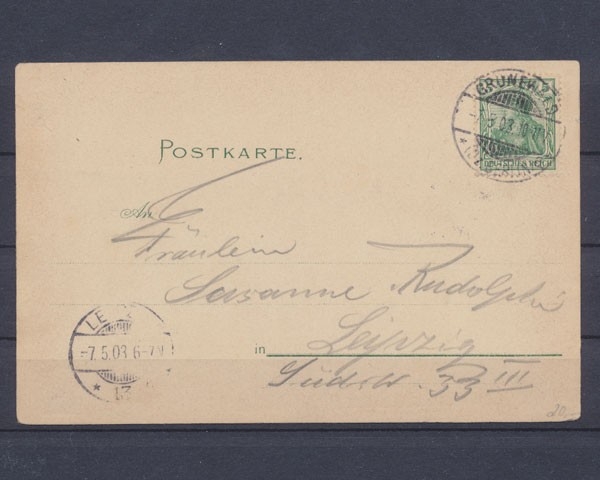 POSTKARTE.
An
Fräulein
Susanne Rudolph
in Leipzig
Südstr. 33 III
DEUTSCHES REICH
5.03.10
LE
-7.5.03 6-7 V
* 13
20,-